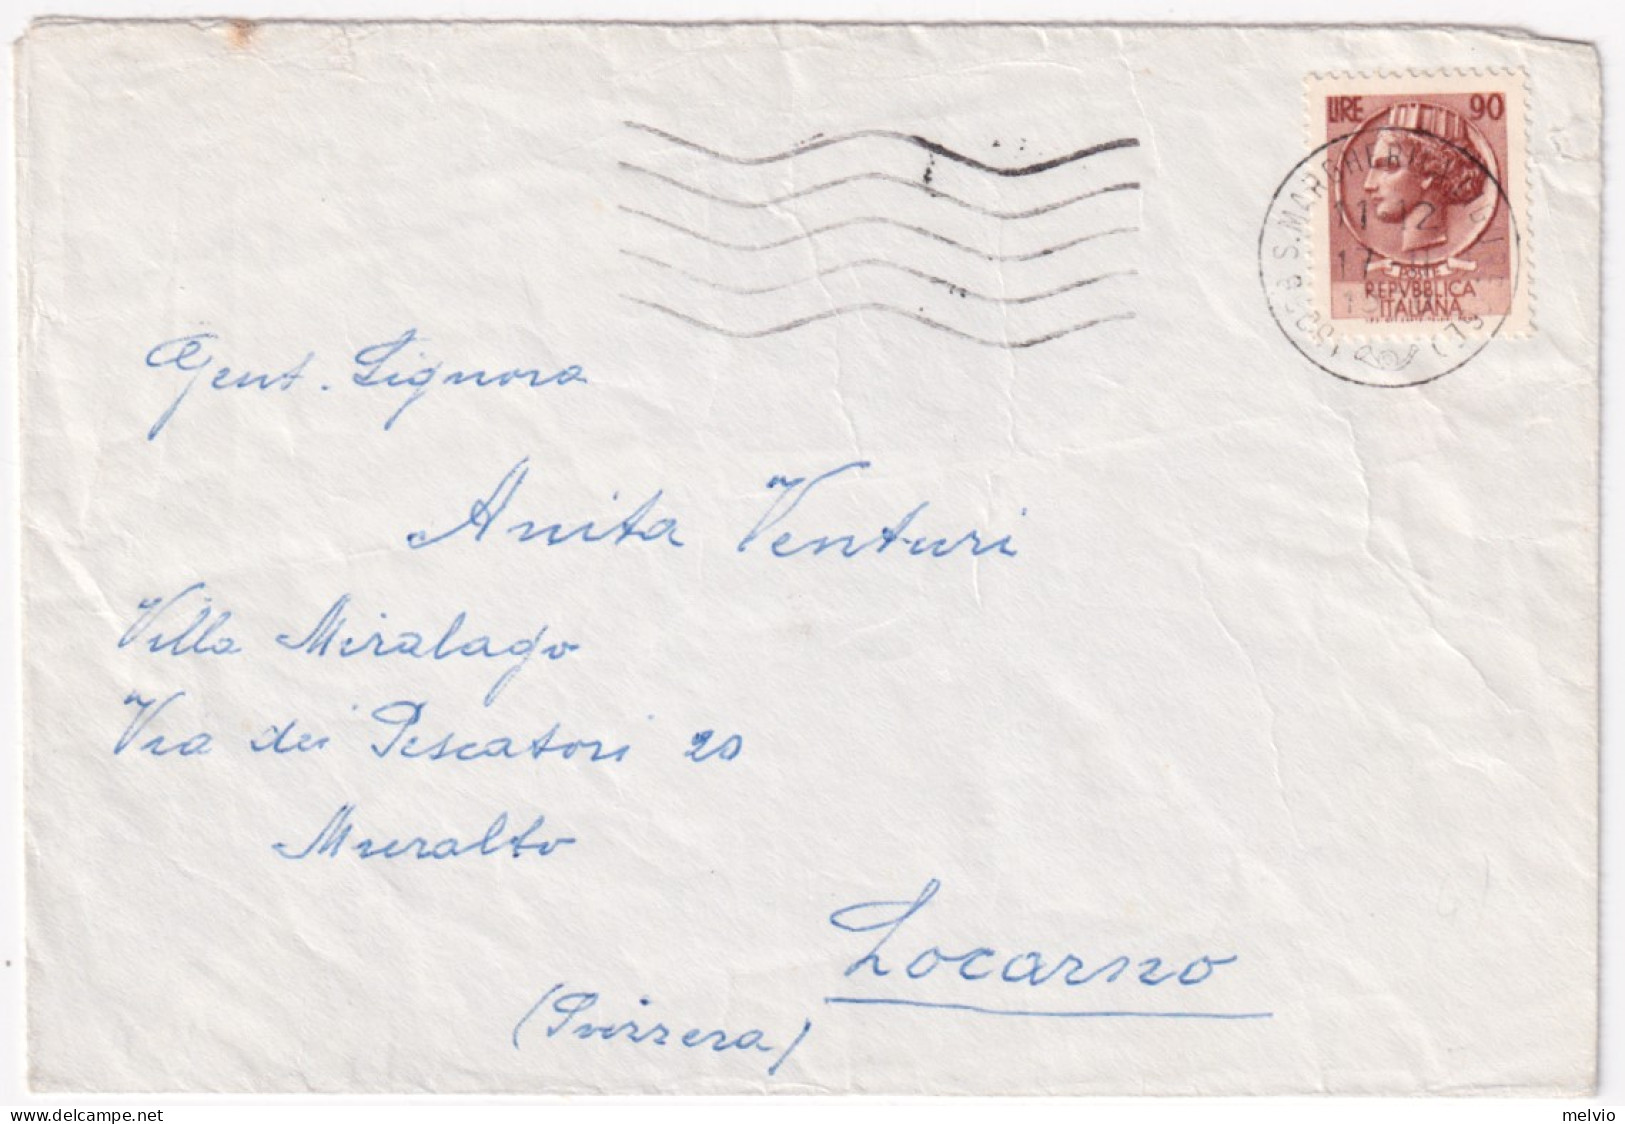 LIRE 90
S. MARGHERITA
11-12
17
POSTE
REPVBBLICA
ITALIANA
Gent. Signora
Anita Venturi
Villa Miralago
Via dei Pescatori 20
Muralto
Locarno
(Svizzera)
www.delcampe.net
melvio